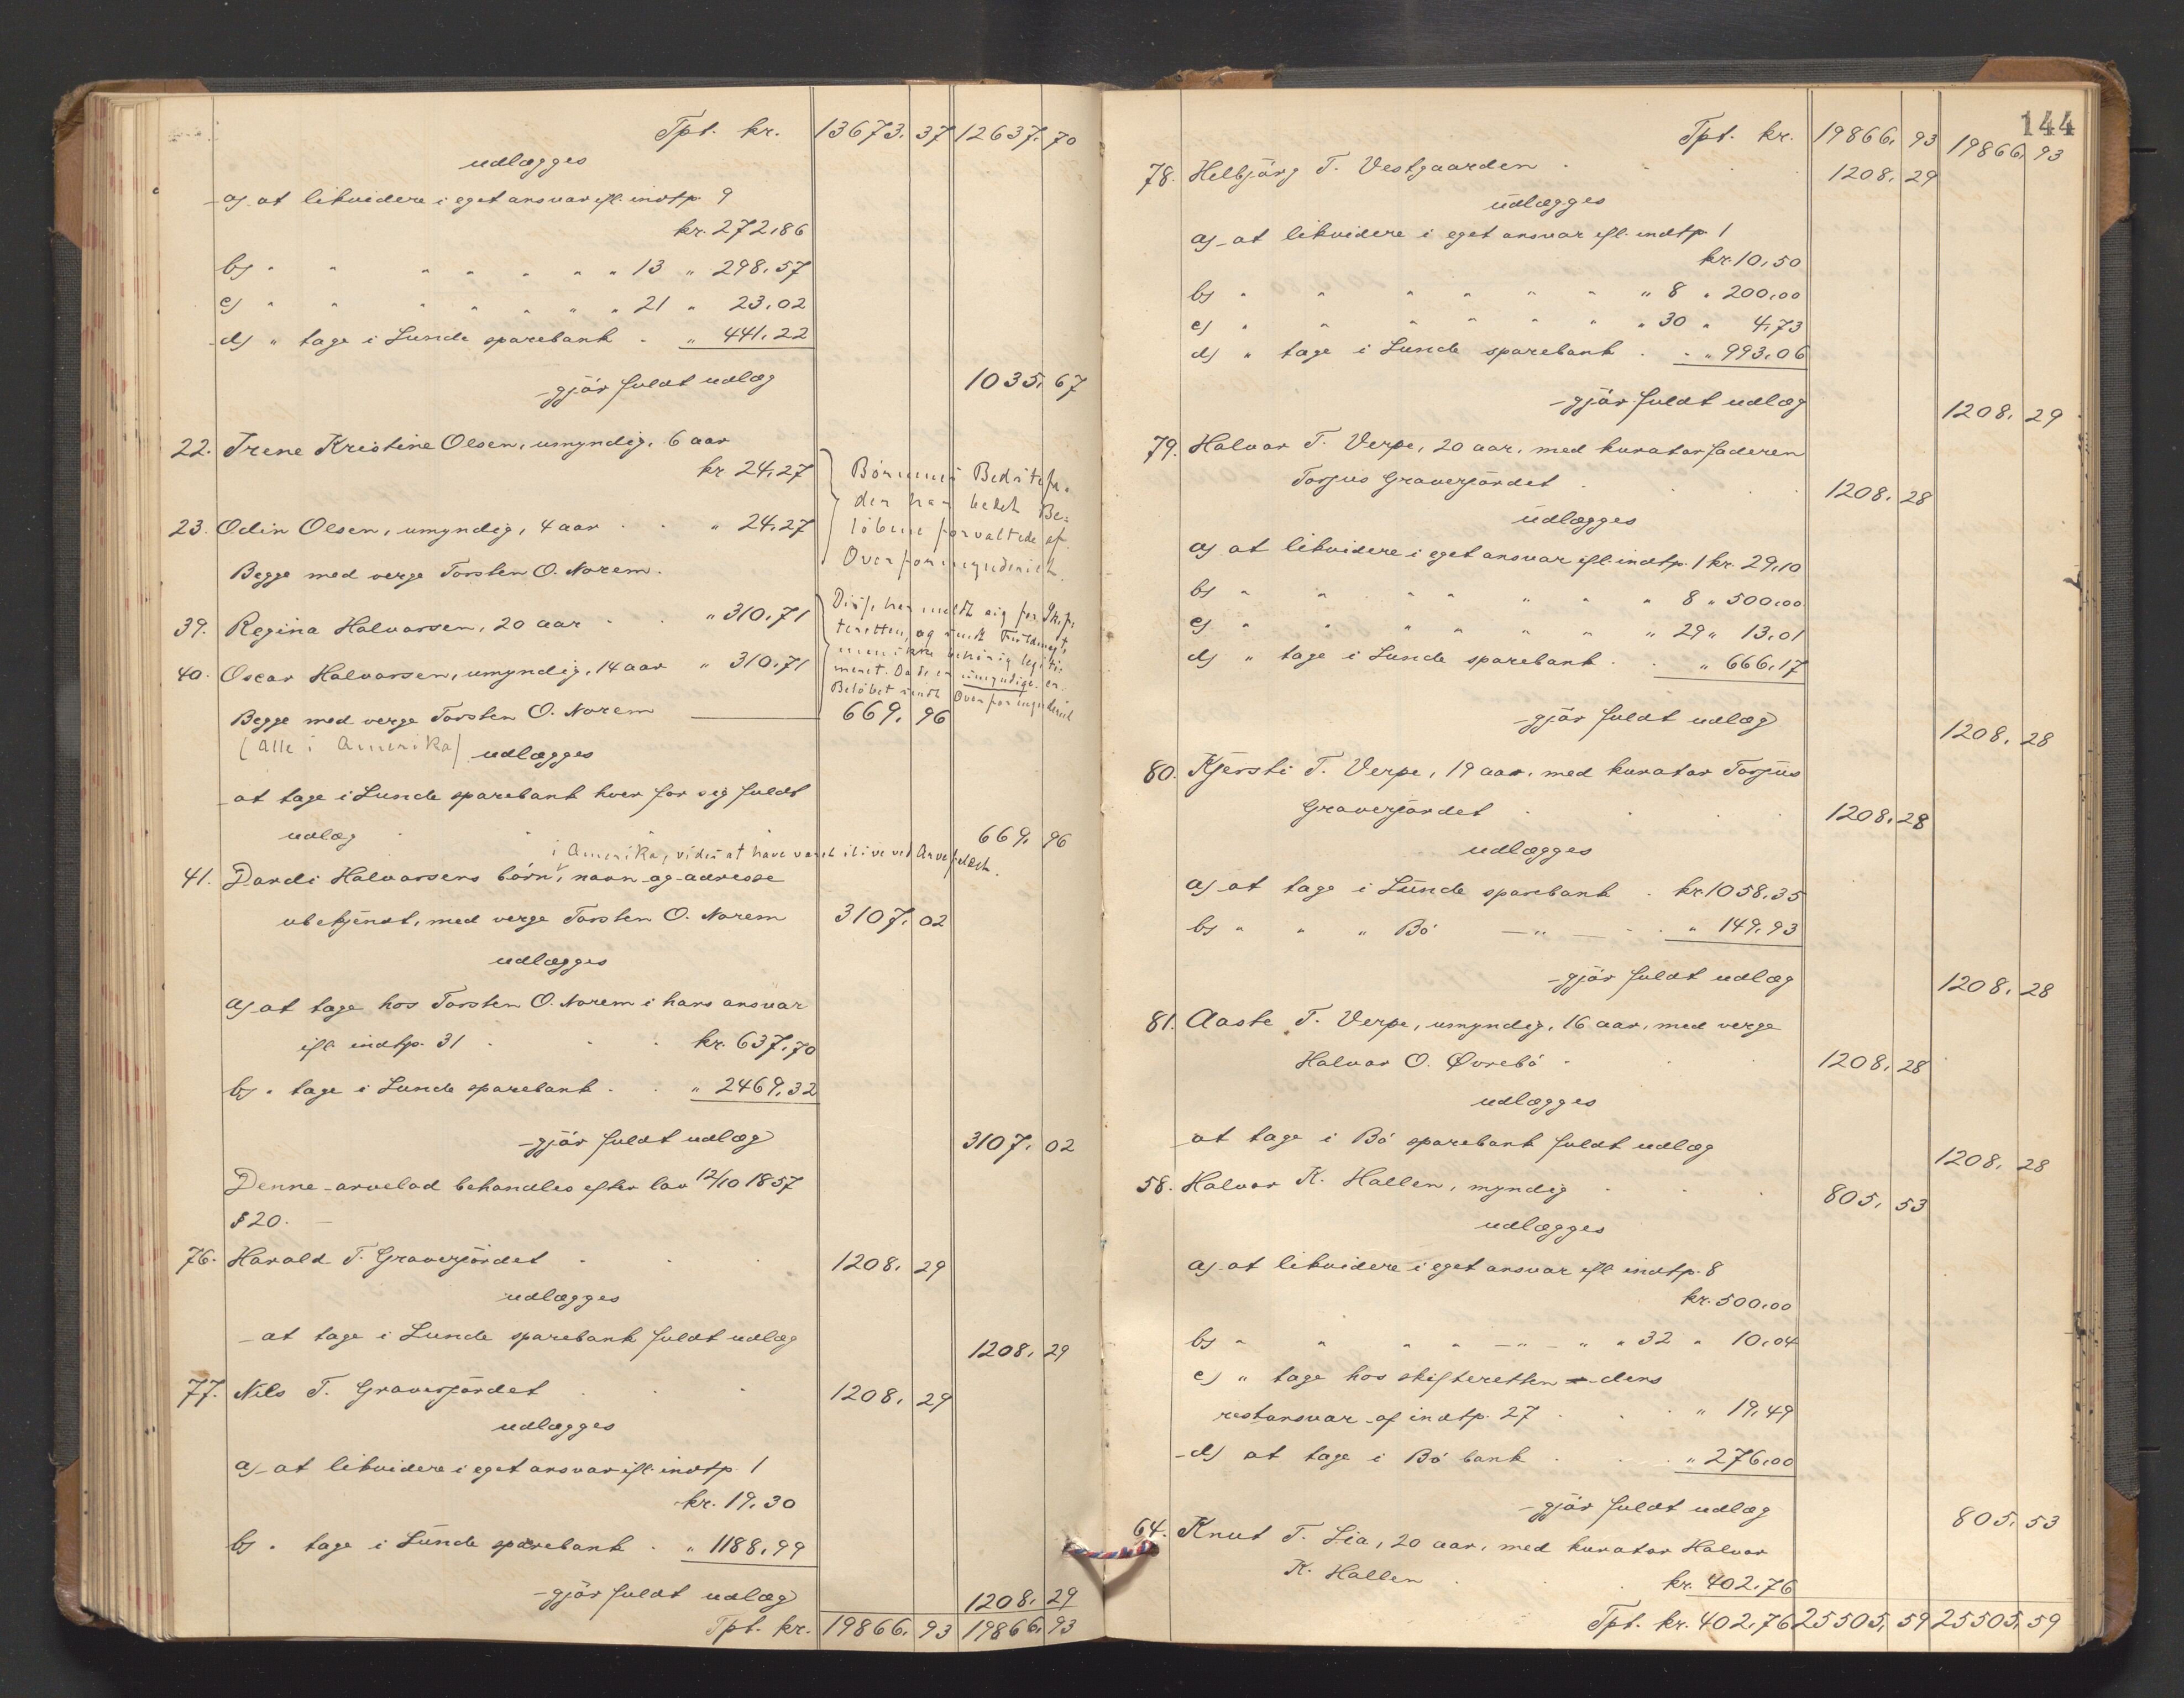 Tpt. kr. 13673,37 12637,70
udlægges
a) at likvidere i eget ansvar ifl. indtp. 9
kr. 272,86
b) " " " " " " " 13 " 298,57
c) " " " " " " " 21 " 23,02
d) " tage i Lunde sparebank . " 441,22
gjör fuldt udlæg 1035,67
22. Irene Kristine Olsen, umyndig, 6 aar
kr. 24,27
23. Odin Olsen, umyndig, 4 aar . . " 24,27
Begge med verge Torsten O. Norem.
Börnenes Bedstefa-
der har bedet Be-
löbene forvaltede af
Overformynderiet.
39. Regina Halvorsen, 20 aar . . " 310,71
40. Oscar Halvorsen, umyndig, 14 aar " 310,71
Begge med verge Torsten O. Norem 669,96
Disse har meldt sig for Skif-
teretten, og sendt Fuldmagt,
men ikke behörig legiti-
meret. Da de er umyndige, er
Belöbet sendt Overformynderiet
(Alle i Amerika) udlægges
at tage i Lunde sparebank hver for sig fuldt
udlæg 669,96
i Amerika, vides at have været ilive ved Arvefaldet.
41. Dordi Halvorsens börn, navn og adresse
ubekjendt, med verge Torsten O. Norem 3107,02
udlægges
a) at tage hos Torsten O. Norem i hans ansvar
ifl. indtp. 31 . . kr. 637,70
b) " tage i Lunde sparebank . . " 2469,32
gjör fuldt udlæg 3107,02
Denne arvelod behandles efter lov 12/10 1857
§ 20.
76. Harald T. Graverjordet . . . 1208,29
udlægges
at tage i Lunde sparebank fuldt udlæg
1208,29
77. Nils T. Graverjordet . . . 1208,29
udlægges
a) at likvidere i eget ansvar ifl. indtp. 1
kr. 19,30
b) " tage i Lunde sparebank . " 1188,99
gjör fuldt udlæg 1208,29
Tpt. kr. 19866,93 19866,93
144
Tpt. kr. 19866,93 19866,93
78. Helbjörg T. Vestgaarden . . . 1208,29
udlægges
a) at likvidere i eget ansvar ifl. indtp. 1
kr. 10,50
b) " " " " " " " 8 " 200,00
c) " " " " " " " 30 " 4,73
d) " tage i Lunde sparebank . . " 993,06
gjör fuldt udlæg 1208,29
79. Halvor T. Verpe, 20 aar, med kurator faderen
Torjus Graverjordet . . 1208,28
udlægges
a) at likvidere i eget ansvar ifl. indtp. 1 kr. 29,10
b) " " " " " " " 8 " 500,00
c) " " " " " " " 29 " 13,01
d) " tage i Lunde sparebank . . " 666,17
gjör fuldt udlæg 1208,28
80. Kjersti T. Verpe, 19 aar, med kurator Torjus
Graverjordet . . . 1208,28
udlægges
a) at tage i Lunde sparebank . kr. 1058,35
b) " " " Bö — " — . " 149,93
gjör fuldt udlæg 1208,28
81. Aaste T. Verpe, umyndig, 16 aar, med verge
Halvor O. Øvrebö . . 1208,28
udlægges
at tage i Bö sparebank fuldt udlæg 1208,28
58. Halvor K. Hallen, myndig . . 805,53
udlægges
a) at likvidere i eget ansvar ifl. indtp. 8
kr. 500,00
b) " " " " — " — " " 32 " 10,04
c) " tage hos skifteretten dens
restansvar af indtp. 27 . . . " 19,49
d) at tage i Bö bank . . . " 276,00
gjör fuldt udlæg 805,53
64. Knut T. Lia, 20 aar, med kurator Halvor
K. Hallen . . kr. 402,76
Tpt. kr. 402,76 25505,59 25505,59